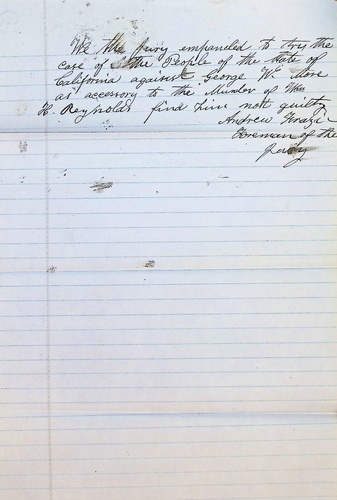 We the jury empaneled to try the
case of the People of the State of
California against George W. More
as accessory to the Murder of Wm
H. Reynolds find him not guilty
Andrew
Foreman of the
jury